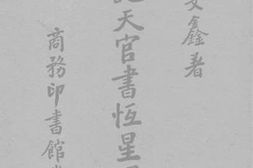 鑫著
天官書恆星
商務印書館